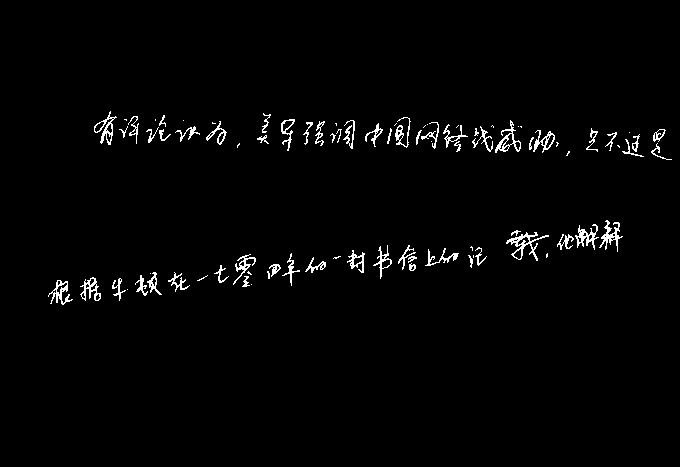 有评论认为，美军强调中国网络战威胁，只不过是
根据牛顿在一七零四年的一封书信上的记载，他解释